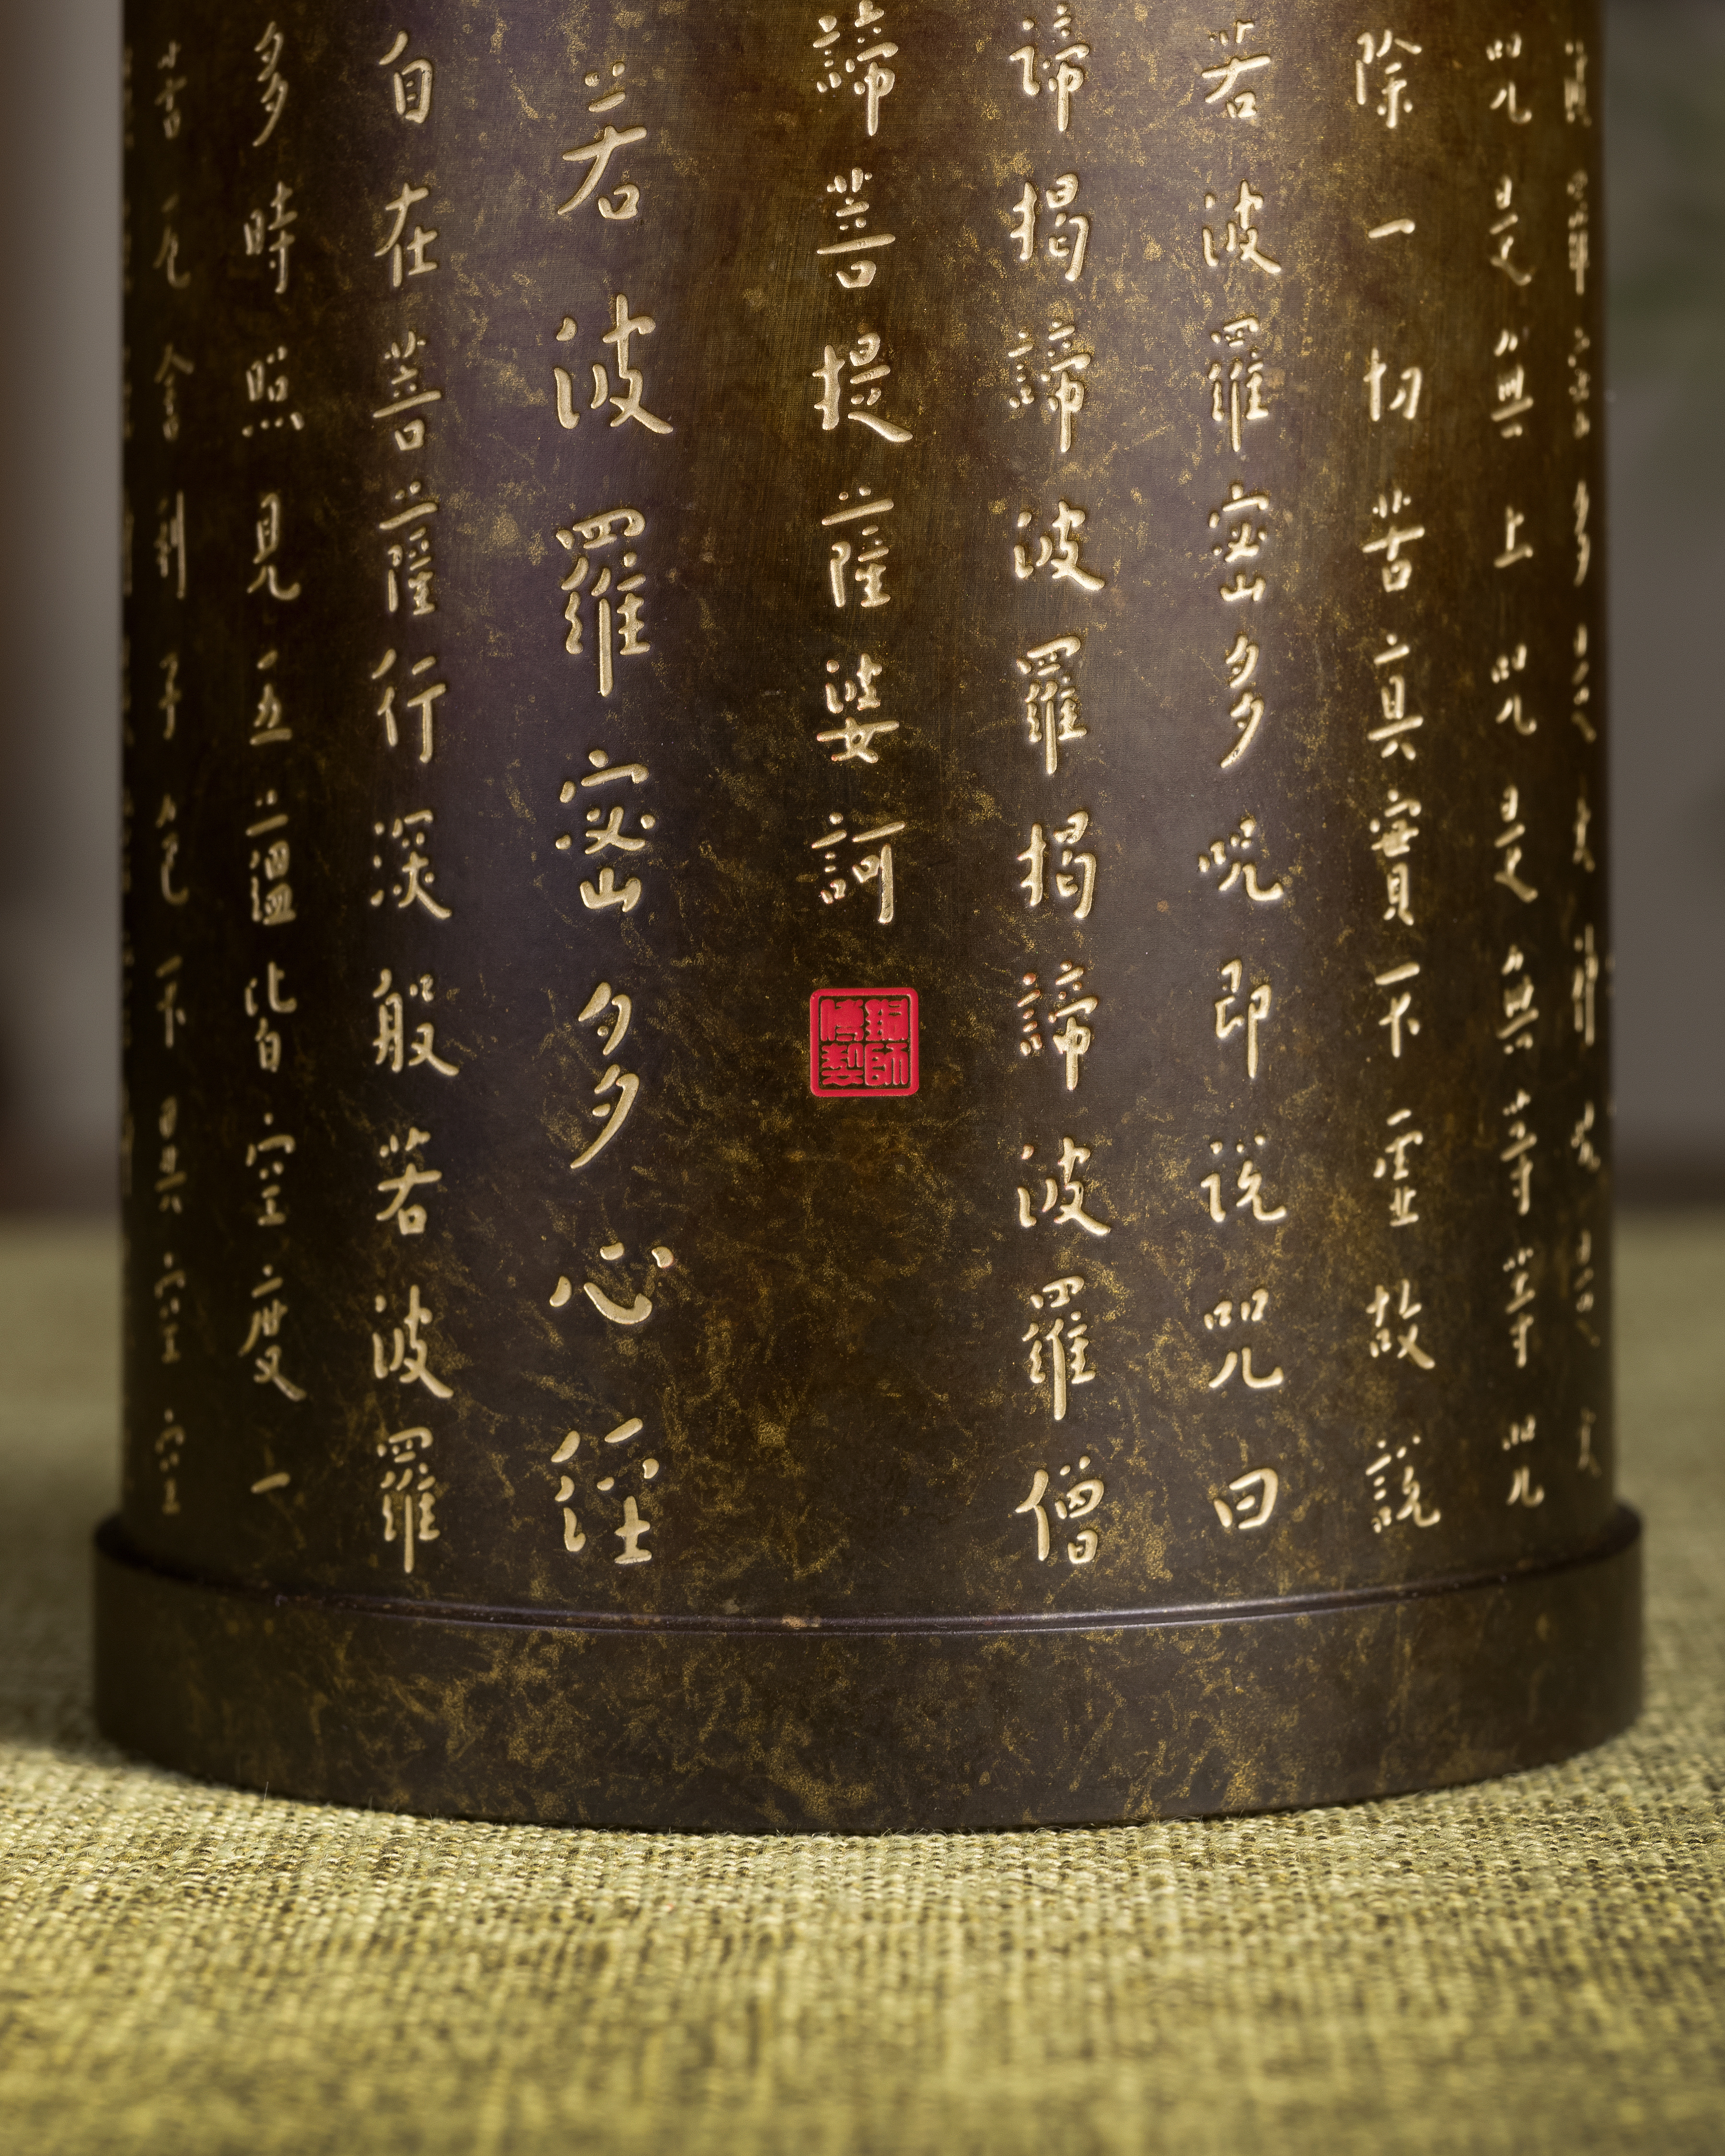 波羅密多是大神咒是大
咒是無上咒是無等等咒
除一切苦真實不虛故說
若波羅密多呪即說咒曰
諦揭諦波羅揭諦波羅僧
諦菩提薩婆訶
銅師傅製
若波羅密多心經
自在菩薩行深般若波羅
多時照見五蘊皆空度一
苦厄舍利子色不異空空